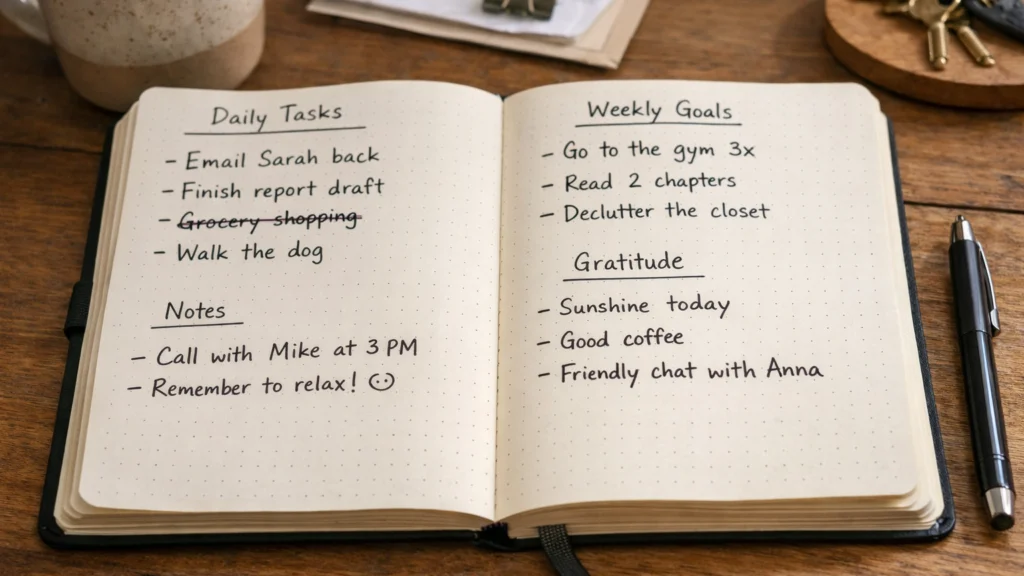 Daily Tasks
- Email Sarah back
- Finish report draft
- Grocery shopping
- Walk the dog
Notes
- Call with Mike at 3 PM
- Remember to relax! ☺
Weekly Goals
- Go to the gym 3x
- Read 2 chapters
- Declutter the closet
Gratitude
- Sunshine today
- Good coffee
- Friendly chat with Anna